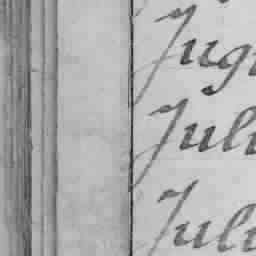 Jug
Juli
Juli